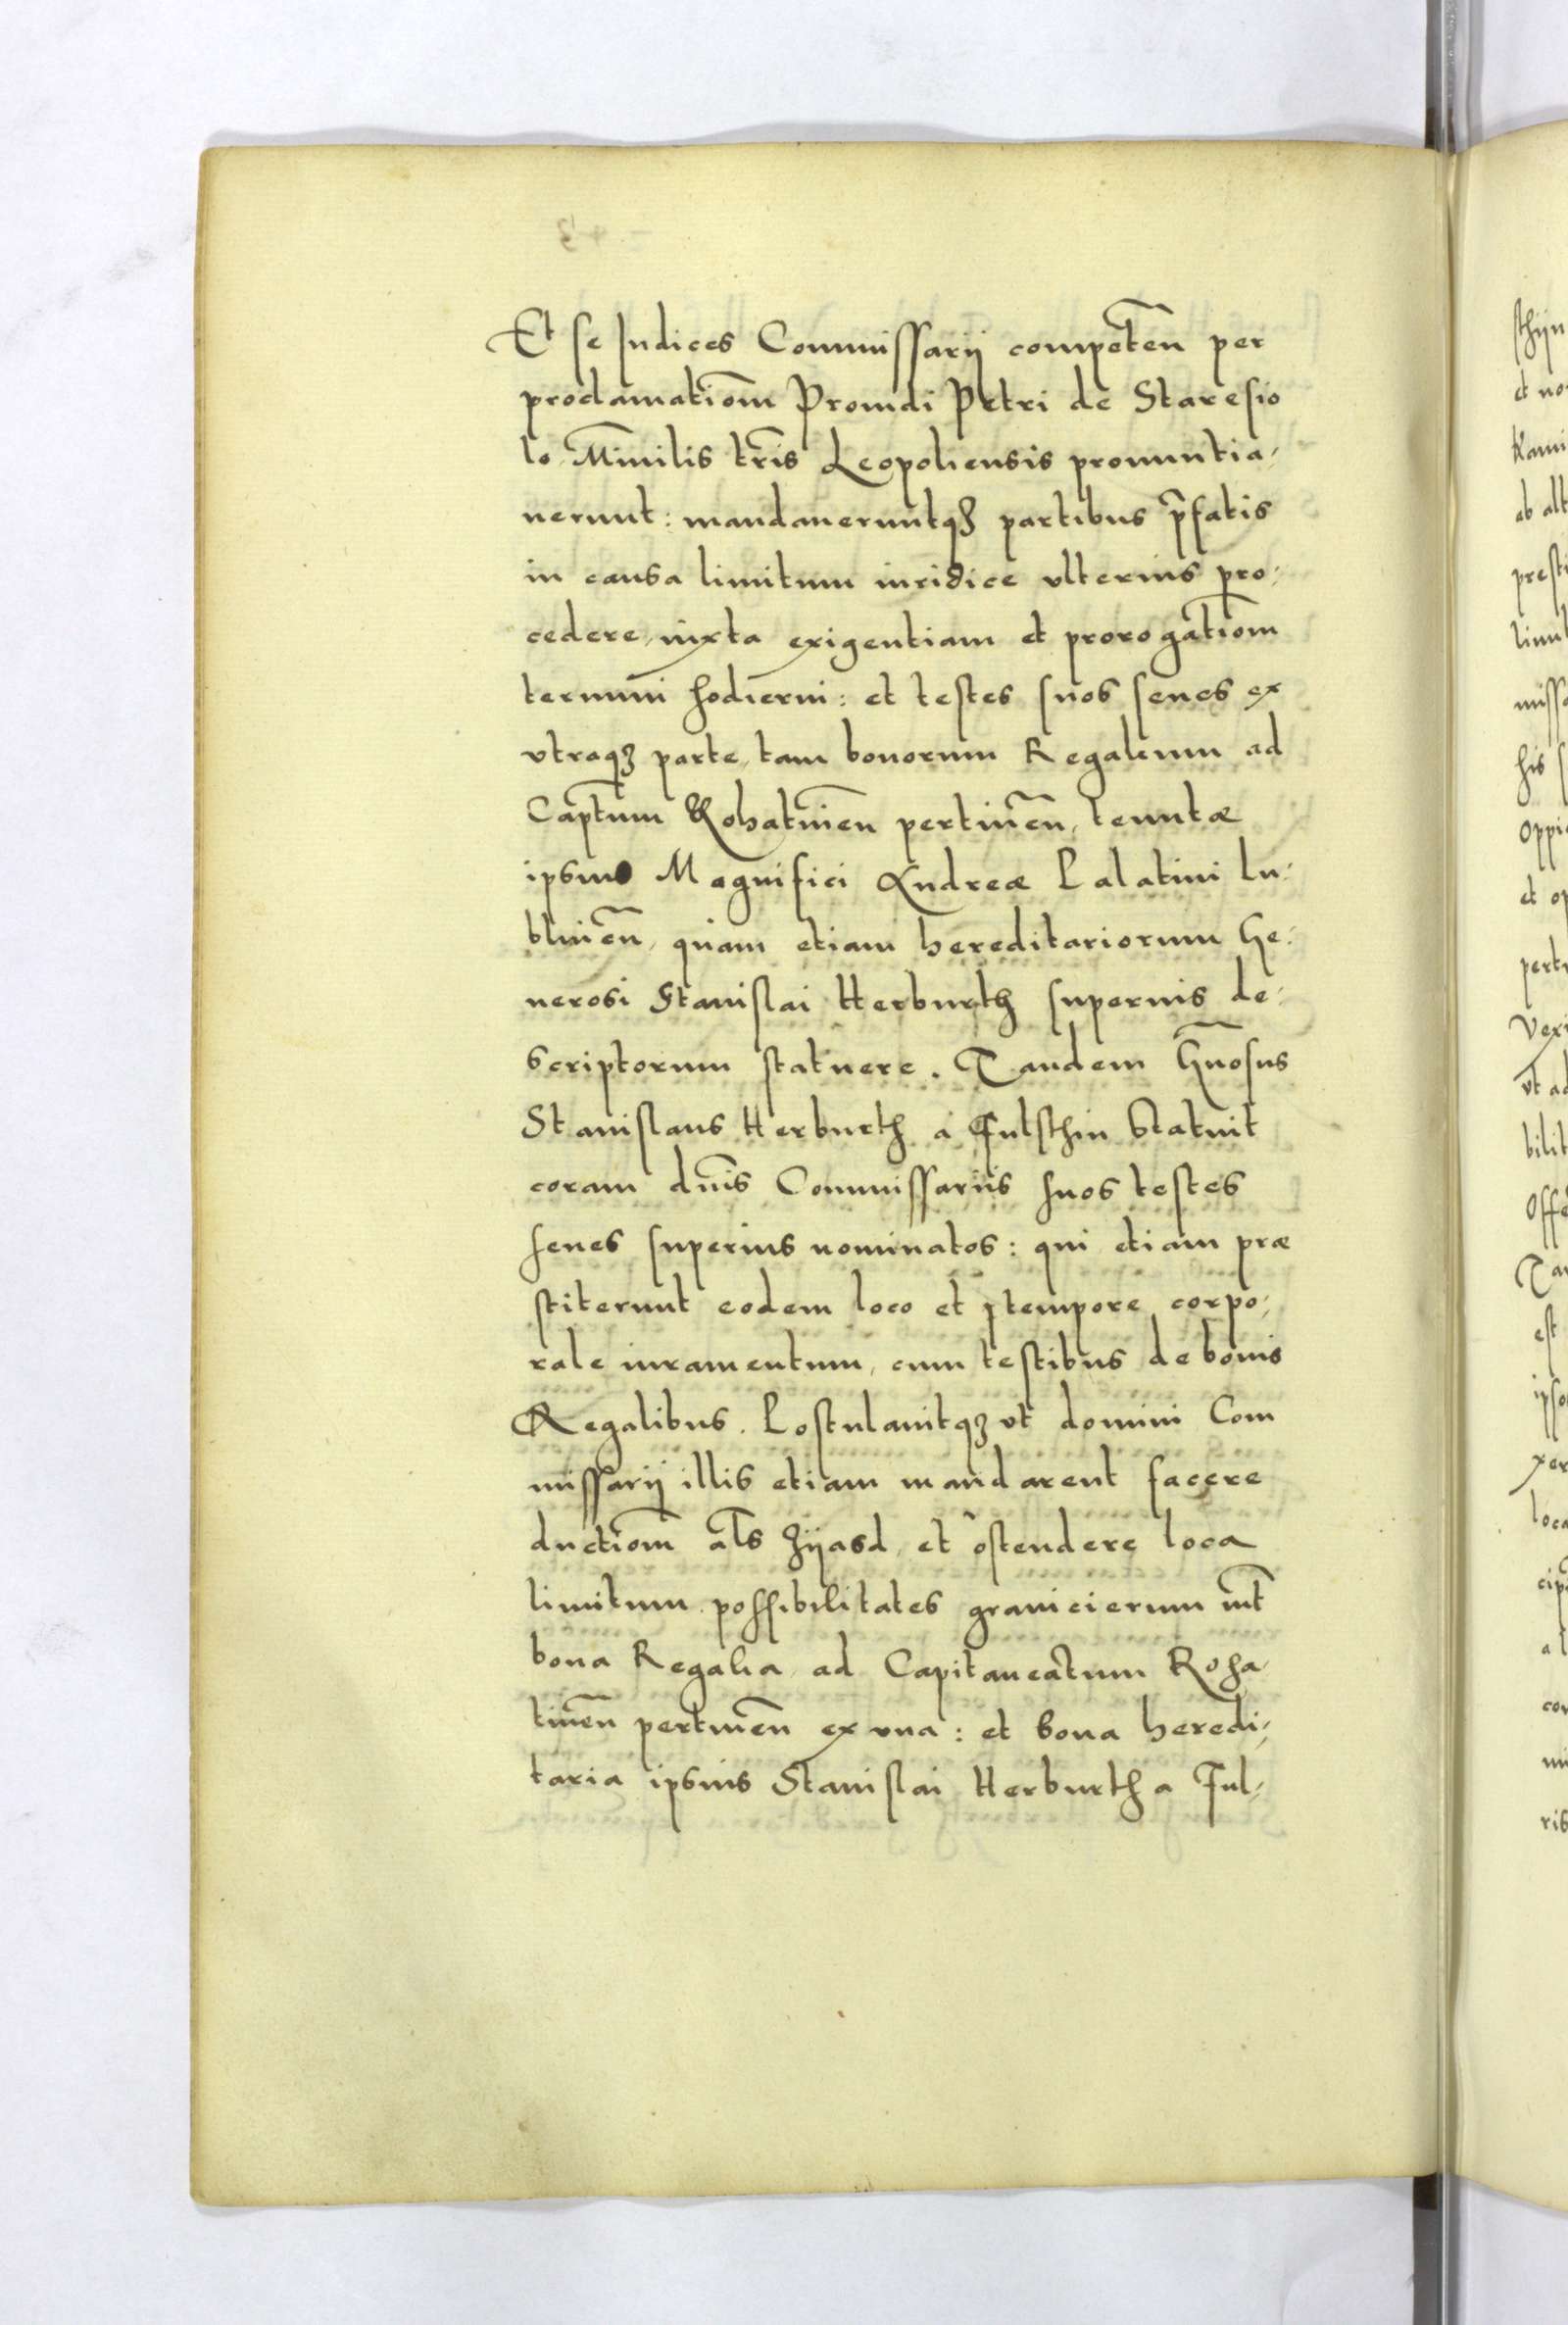 Et se Iudices Commissarij competen̄ per
proclamatiom̄ Prouidi Petri de Staresio
lo Mīnilis tr̄is Leopoliensis pronuntia,
uerunt: mandaueruntqꝫ partibus p̄fatis
in causa limitum iuridice vlterius pro,
cedere, iuxta exigentiam et prorogatiom̄
termini hodierni: et testes suos senes ex
vtraqꝫ parte, tam bonorum Regalium ad
Captum̄ Rohatinen̄ pertinen̄, tenutæ
ipsius Magnifici Andreæ Palatini Lu,
blinen̄, quam etiam hereditariorum Ge,
nerosi Stanislai Herburth superius de,
scriptorum statuere. Tandem Gn̄osus
Stanislaus Herburth a Fulsthin statuit
coram dn̄is Commissariis suos testes
senes superius nominatos: qui etiam præ
stiterunt eodem loco et tempore corpo,
rale iuramentum, cum testibus de bonis
Regalibus. Postulauitqꝫ vt domini Com
missarij illis etiam mandarent facere
ductiom̄ al̄s Zijasd, et ostendere loca
limitum possibilitates granicierum int̄
bona Regalia, ad Capitaneatum Roha,
tinen̄ pertinen̄ ex vna: et bona heredi,
taria ipsius Stanislai Herburth a Ful,